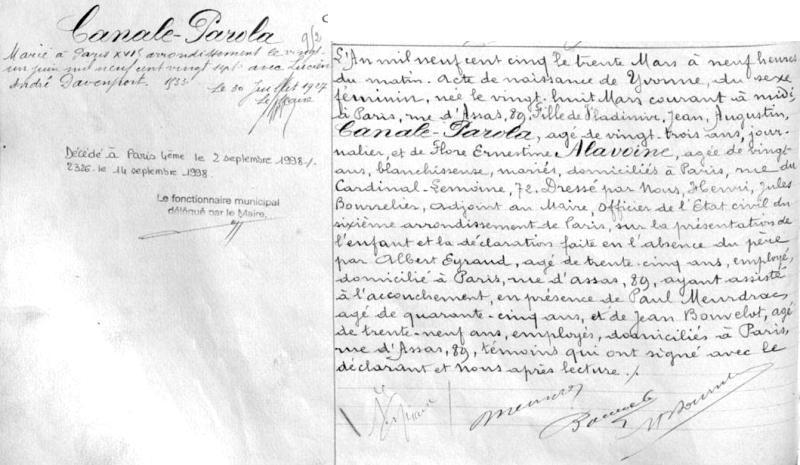 Canale-Parola
9/2
Marié à Paris XVIe arrondissement le vingt-
un juin mil neuf cent vingt sept avec Lucien
André Davenport. 933
Le 30 Juillet 1927
Le Maire
Décédé à Paris 4ème le 2 septembre 1998./.
2326. le 14 septembre 1998.
Le fonctionnaire municipal
délégué par le Maire,
L'An mil neuf cent cinq le trente Mars à neuf heures
du matin. Acte de naissance de Yvonne, du sexe
féminin, née le vingt-huit Mars courant à midi,
à Paris, rue d'Assas, 89, Fille de Vladimir, Jean, Augustin,
Canale-Parola, agé de vingt-trois ans, jour-
nalier, et de Flore Ernestine Alavoine, agée de vingt
ans, blanchisseuse, mariés, domiciliés à Paris, rue du
Cardinal-Lemoine, 72. Dressé par Nous, Henri, Jules
Bourrelier, Adjoint au Maire, Officier de l'Etat civil du
sixième arrondissement de Paris, sur la présentation de
l'enfant et la déclaration faite en l'absence du père
par Albert Eyraud, agé de trente-cinq ans, employé,
domicilié à Paris, rue d'Assas, 89, ayant assisté
à l'accouchement, en présence de Paul Meurdrac,
agé de quarante-cinq ans, et de Jean Bouvelot, agé
de trente-neuf ans, employés, domiciliés à Paris,
rue d'Assas, 89, témoins qui ont signé avec le
déclarant et Nous après lecture. /.